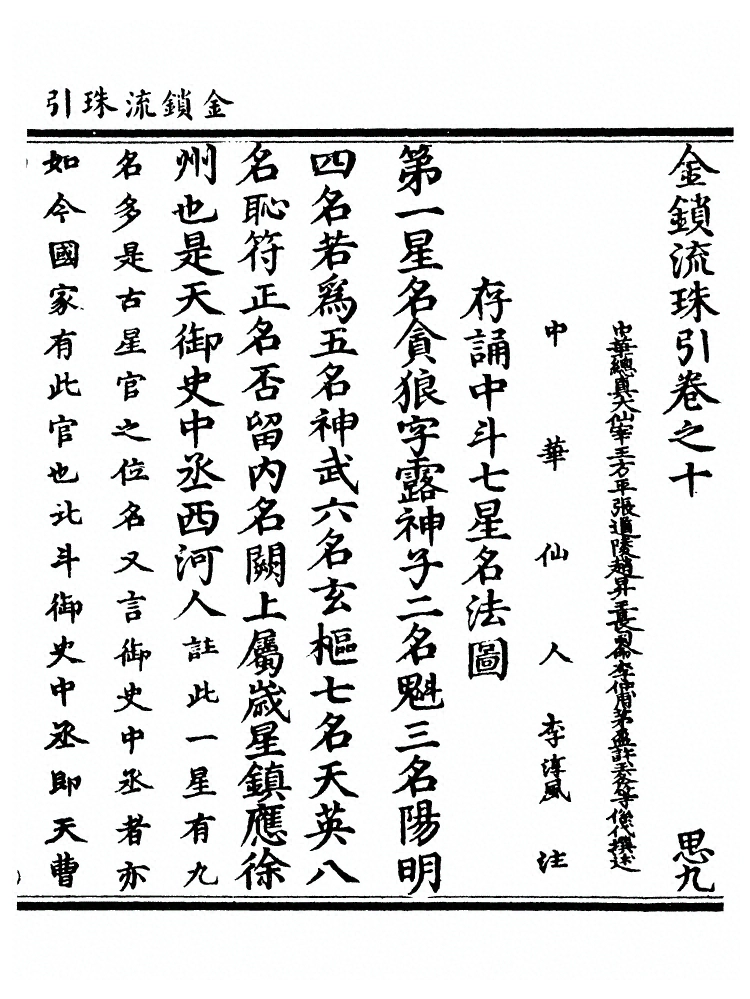 金鎖流珠引
金鎖流珠引卷之十　思九
中華總真大仙宰王方平張道陵趙昇王長司命李仲甫茅盈許玉斧等係代撰述
中華仙人李淳風注
存誦中斗七星名法圖
第一星名貪狼字露神子二名魁三名陽明
四名若爲五名神武六名玄樞七名天英八
名恥符正名否留內名闕上屬歲星鎮應徐
州也是天御史中丞西河人註此一星有九
名多是古星官之位名又言御史中丞者亦
如今國家有此官也北斗御史中丞即天曹